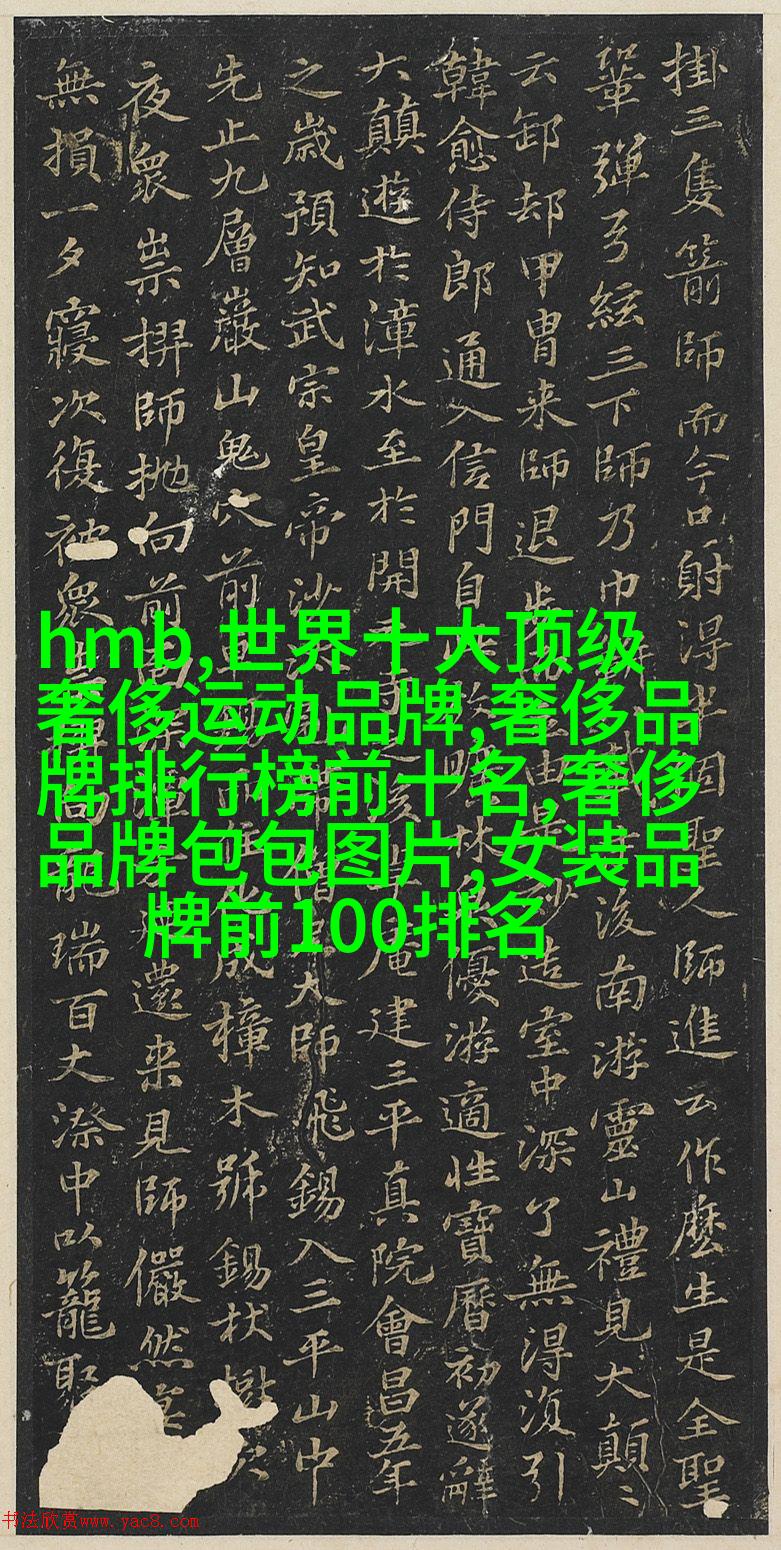 掛三隻箭師而今只射得半個聖人師進云作麼生是全聖
鞏彈弓絃三下師乃巾後南游靈山禮見大顛〻
云卸却甲胄来師退步由是妙造室中深了無得湏引
韓愈侍郎通入信門自優游適性寶曆初遂辭
大顛遊於漳水至於開菴建三平真院會昌五年
之歲預知武宗皇帝沙大師飛錫入三平山中
先止九層巖山鬼穴前化成樟木號錫杖樹穴
夜衆祟師抛向前還来見師儼然
無損一夕寢次復被衆瑞百丈漈中以籠聚
hmb,世界十大顶级
奢侈运动品牌,奢侈品
牌排行榜前十名,奢侈
品牌包包图片,女装品
牌前100排名
书法欣赏www.yac8.com